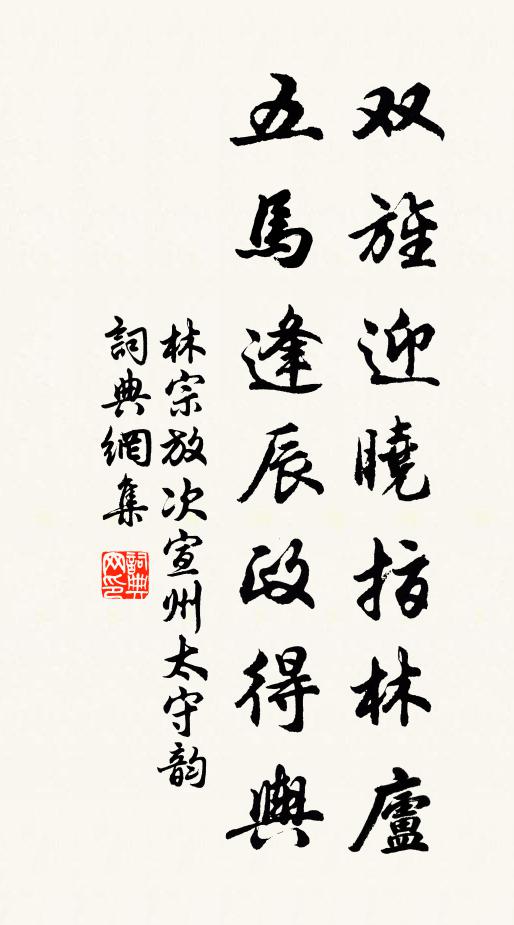 双旌迎曉指林廬
五馬逢辰政得輿
林宗放次宣州太守韵
詞典網集
詞典网印